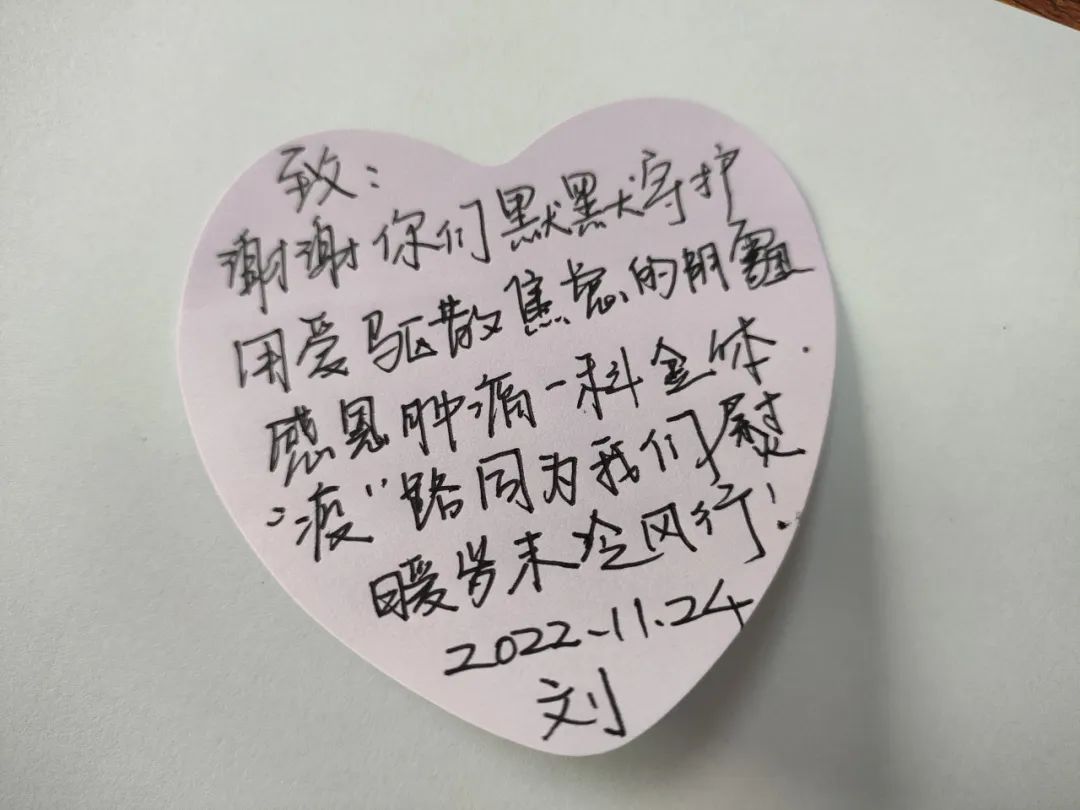 致:
谢谢你们默默守护
用爱驱散焦虑的阴霾
感恩肿瘤一科全体.
"疫"路同为我们熨
暖岁末冷风行!
2022.11.24
刘